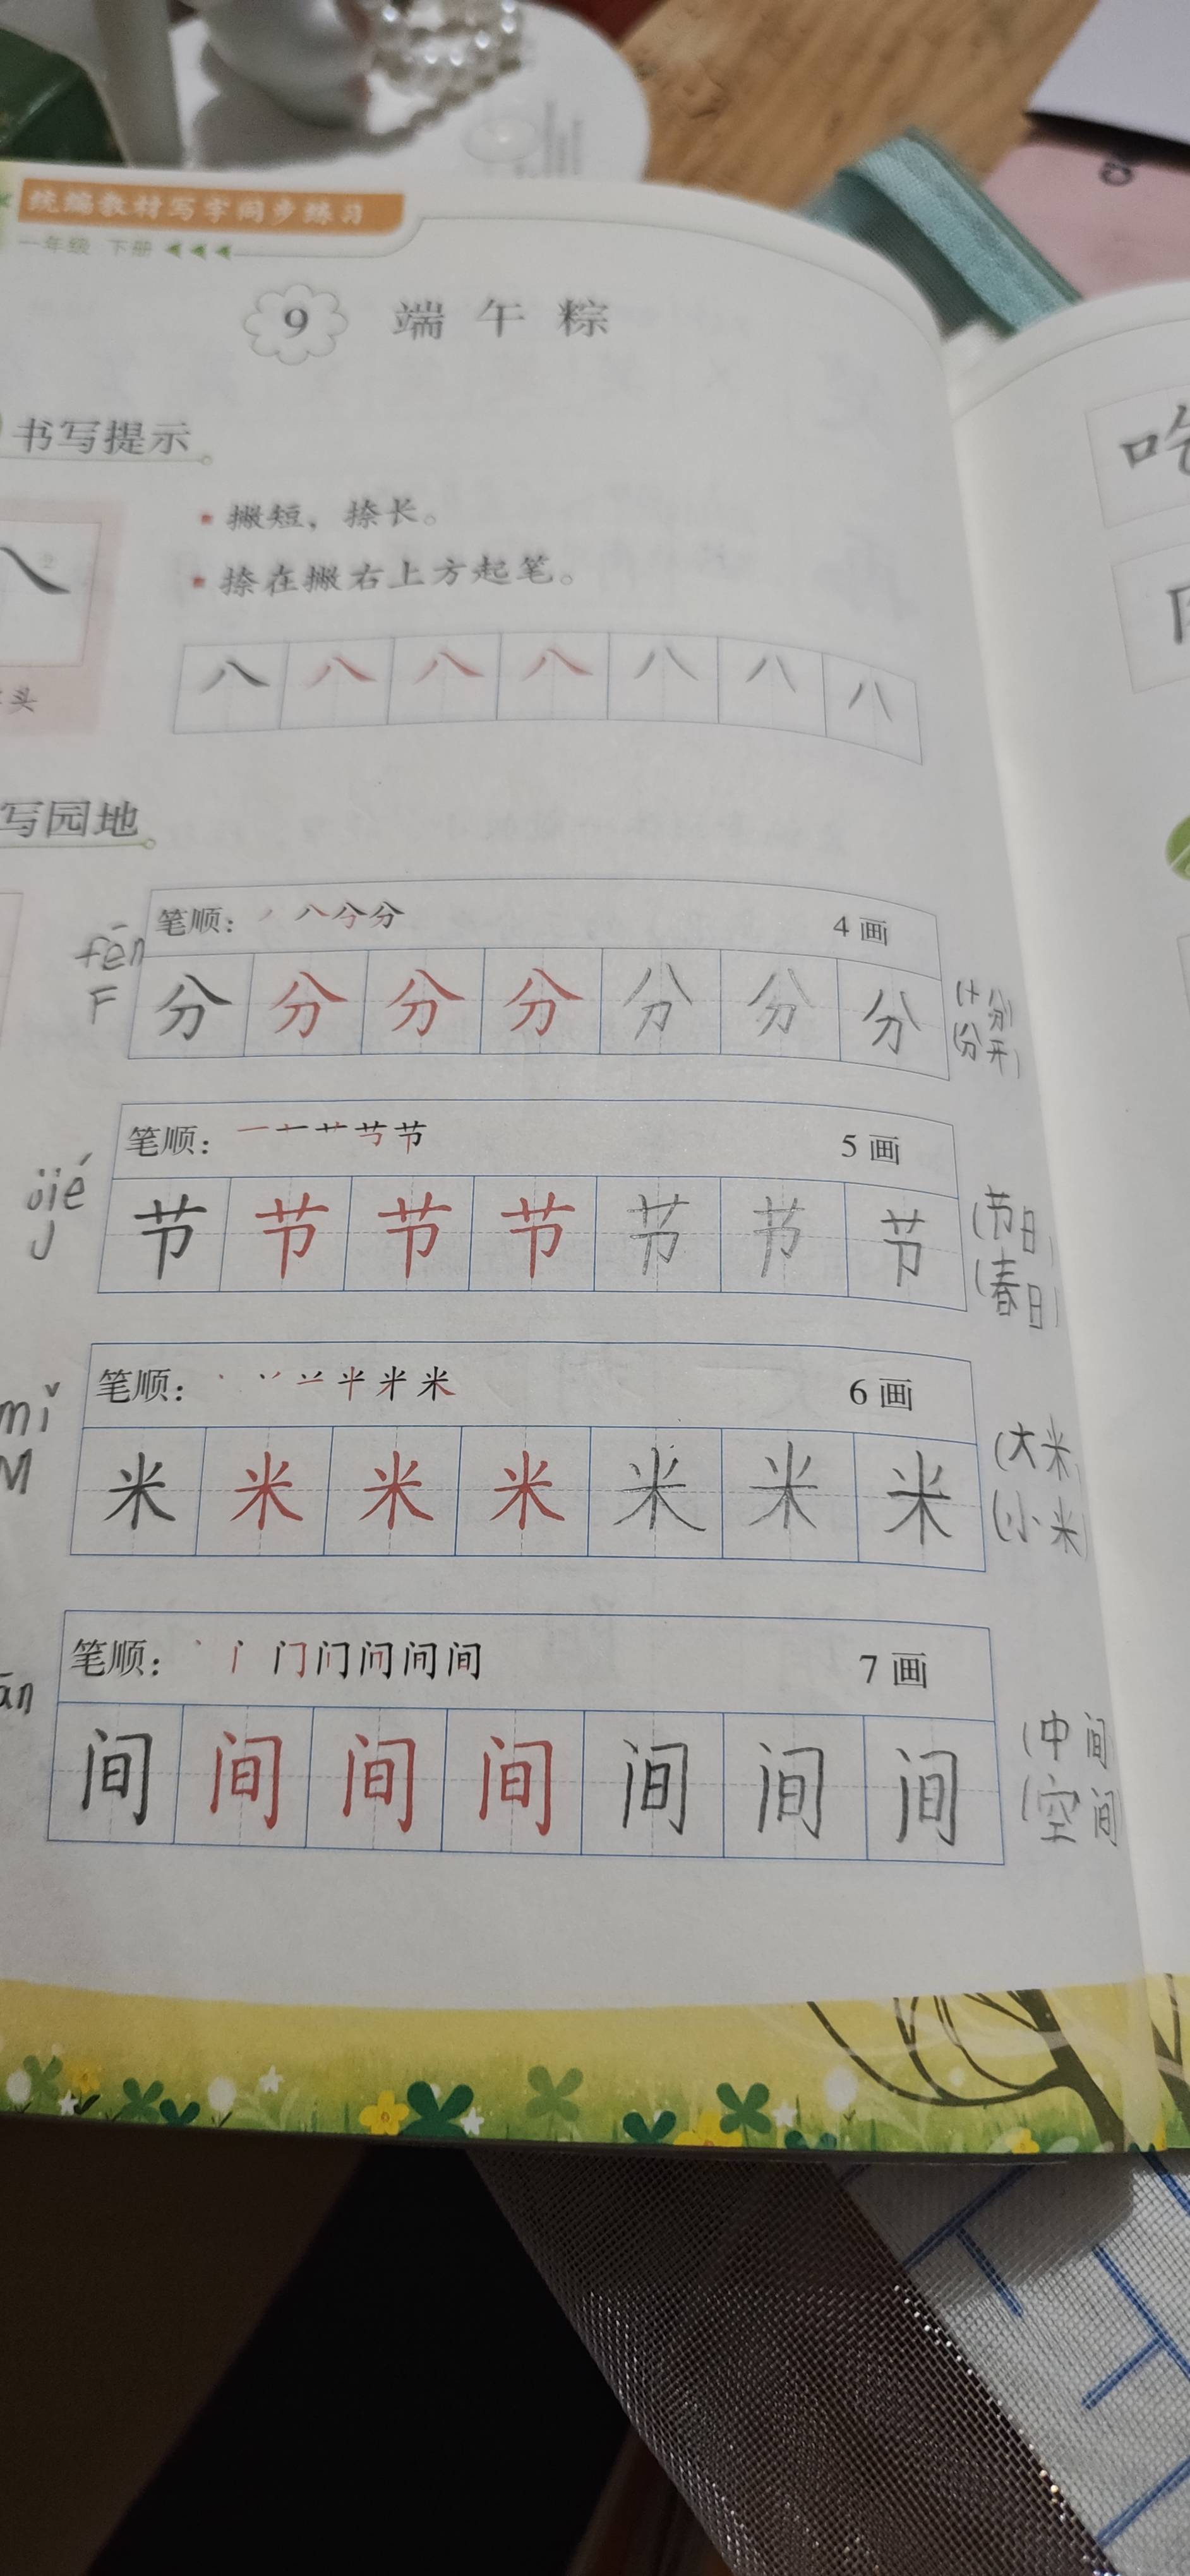 统编教材写字同步练习
一年级 下册
9 端午粽
书写提示
撇短，捺长。
捺在撇右上方起笔。
2
头
八 八 八 八 八 八 八
写园地
笔顺： 丿 八 分 分 4画
fēn
F
分 分 分 分 分 分 分
(十分)
(分开)
笔顺： 5画
jié
J
节 节 节 节 节 节 节
(节日)
(春日)
笔顺： 6画
mǐ
M
米 米 米 米 米 米 米
(大米)
(小米)
笔顺： 7画
ān
间 间 间 间 间 间 间
(中间
(空间)
吃